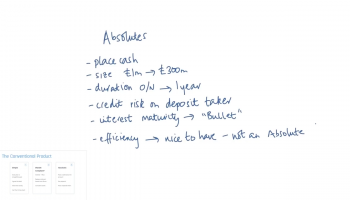 Absolutes
- place cash
- size £1m → £300m
- duration O/N → 1 year
- credit risk on deposit taker
- interest maturity → "Bullet"
- efficiency → nice to have - not an Absolute
The Conventional Product